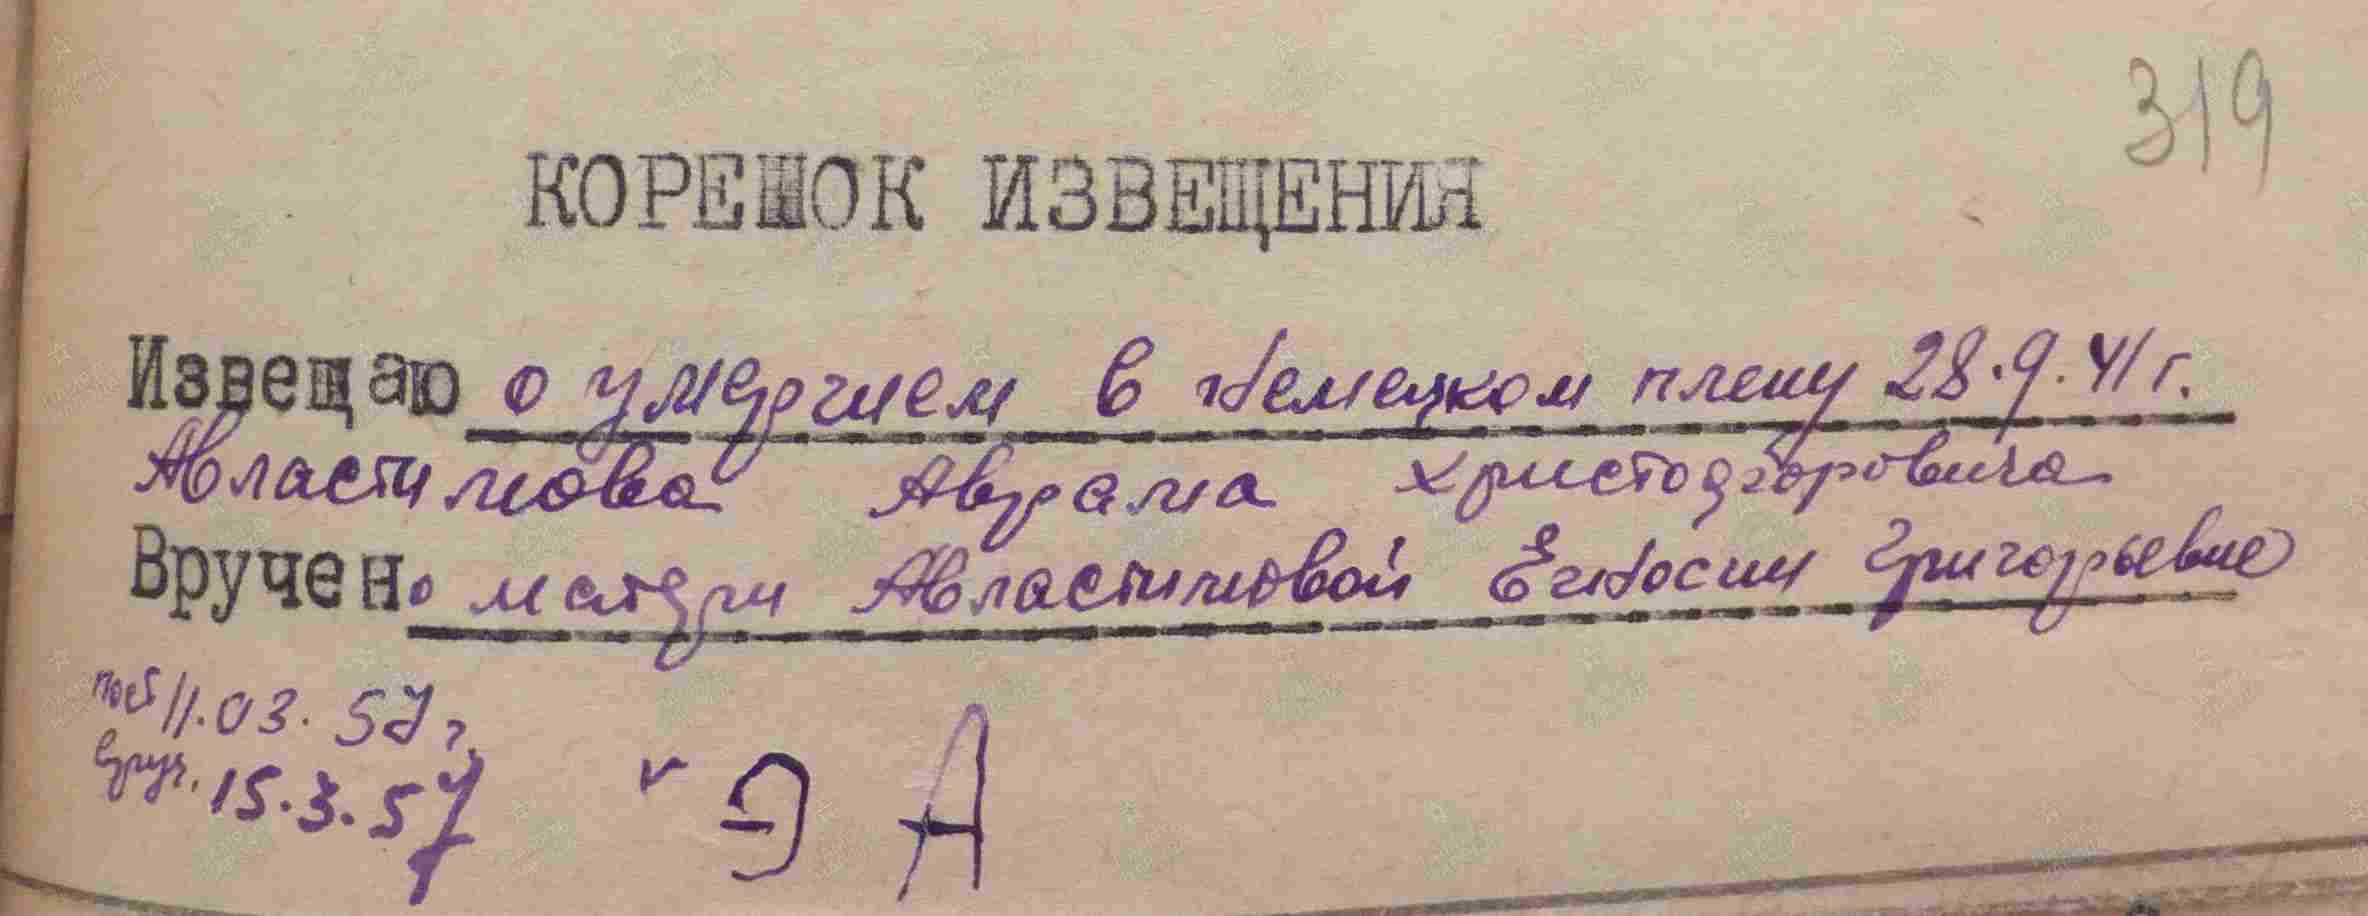 319
КОРЕШОК ИЗВЕЩЕНИЯ
Извещаю о умершем в немецком плену 28.9.41 г.
Авластимова Аврама Христофоровича
Вручено матери Авластимовой Григорьевне
11.03.57 г.
вруч. 15.3.57
Э А